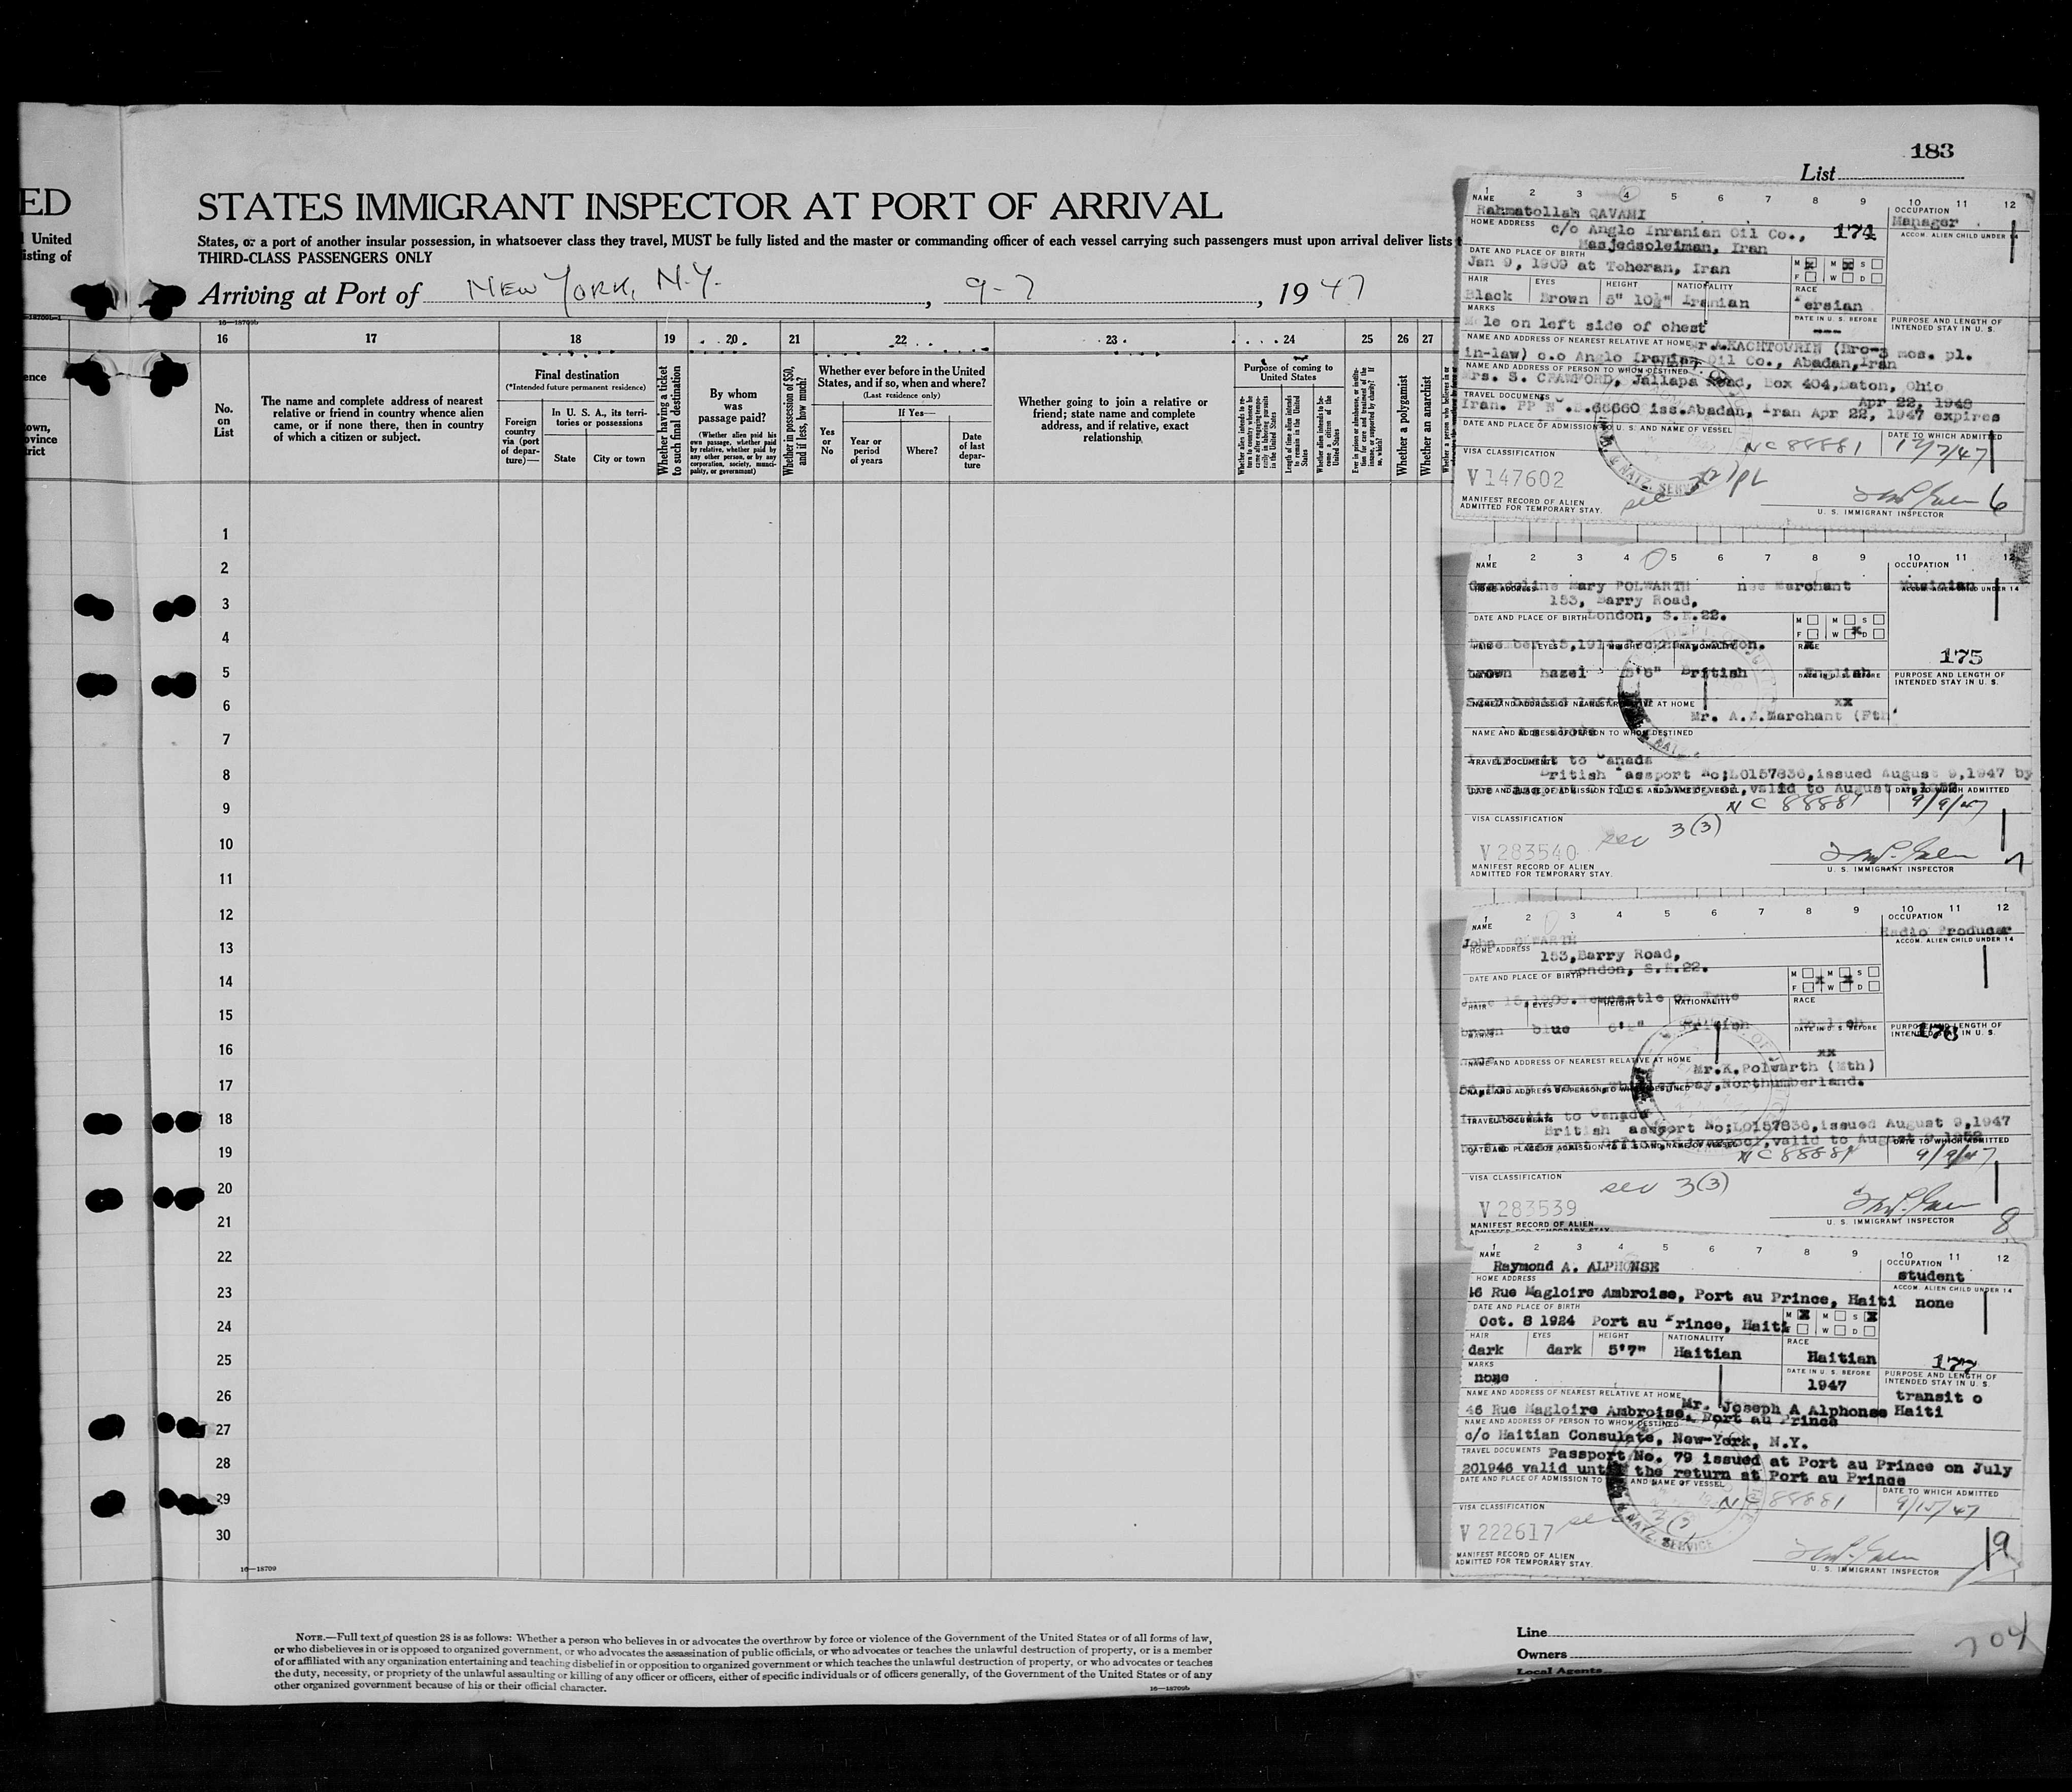 183
List
ED
STATES IMMIGRANT INSPECTOR AT PORT OF ARRIVAL
United
isting of
States, or a port of another insular possession, in whatsoever class they travel, MUST be fully listed and the master or commanding officer of each vessel carrying such passengers must upon arrival deliver lists
THIRD-CLASS PASSENGERS ONLY
Arriving at Port of New York, N.Y., 9-7, 1947
16—18709b
16 17 18 19 20 21 22 23 24 25 26 27
No. on List
The name and complete address of nearest relative or friend in country whence alien came, or if none there, then in country of which a citizen or subject.
Final destination
(*Intended future permanent residence)
Foreign country via (port of departure)—
In U. S. A., its territories or possessions
State
City or town
Whether having a ticket to such final destination
By whom was passage paid?
(Whether alien paid his own passage, whether paid by relative, whether paid by any other person, or by any corporation, society, municipality, or government)
Whether in possession of $50, and if less, how much?
Whether ever before in the United States, and if so, when and where?
(Last residence only)
If Yes—
Yes or No
Year or period of years
Where?
Date of last departure
Whether going to join a relative or friend; state name and complete address, and if relative, exact relationship
Purpose of coming to United States
Length of time alien intends to remain in the United States
Whether alien intends to become a citizen of the United States
Whether a polygamist
Whether an anarchist
1
2
3
4
5
6
7
8
9
10
11
12
13
14
15
16
17
18
19
20
21
22
23
24
25
26
27
28
29
30
16—18709
NOTE.—Full text of question 28 is as follows: Whether a person who believes in or advocates the overthrow by force or violence of the Government of the United States or of all forms of law,
or who disbelieves in or is opposed to organized government, or who advocates the assassination of public officials, or who advocates or teaches the unlawful destruction of property, or is a member
of or affiliated with any organization entertaining and teaching disbelief in or opposition to organized government or which teaches the unlawful destruction of property, or who advocates or teaches
the duty, necessity, or propriety of the unlawful assaulting or killing of any officer or officers, either of specific individuals or of officers generally, of the Government of the United States or of any
other organized government because of his or their official character.
16—18709b
Line
Owners
Local Agents
704
1 2 3 4 5 6 7 8 9 10 11 12
NAME
OCCUPATION
Rahmatollah QAVAMI
Manager
HOME ADDRESS
c/o Anglo Inranian Oil Co.,
174
ACCOM. ALIEN CHILD UNDER 14
Masjedsoleiman, Iran
DATE AND PLACE OF BIRTH
Jan 9, 1909 at Teheran, Iran
M M S
F W D
HAIR EYES HEIGHT NATIONALITY RACE
Black Brown 5" 10½" Iranian ersian
MARKS
DATE IN U. S. BEFORE
PURPOSE AND LENGTH OF INTENDED STAY IN U. S.
le on left side of chest
---
NAME AND ADDRESS OF NEAREST RELATIVE AT HOME
3 mos. pl.
in-law) c.o Anglo Iranian Oil Co., Abadan,Iran
NAME AND ADDRESS OF PERSON TO WHOM DESTINED
Mrs. S. CRAWFORD, Jallapa Road, Box 404,Daton, Ohio
TRAVEL DOCUMENTS
Apr 22, 1948
Iran. PP N .66660 iss.Abadan, Iran Apr 22, 1947 expires
DATE AND PLACE OF ADMISSION TO U. S. AND NAME OF VESSEL
NC 88881
DATE TO WHICH ADMITTED
12/7/47
VISA CLASSIFICATION
V 147602
sec 3(2) PL
MANIFEST RECORD OF ALIEN
ADMITTED FOR TEMPORARY STAY.
U. S. IMMIGRANT INSPECTOR
6
1 2 3 4 5 6 7 8 9 10 11 12
NAME
OCCUPATION
Gwendoline Mary POLWARTH nee Marchant
Musician
HOME ADDRESS
ACCOM. ALIEN CHILD UNDER 14
153, Barry Road,
DATE AND PLACE OF BIRTH London, S.E.22.
M M S
F W D
HAIR EYES HEIGHT NATIONALITY RACE
175
brown hazel 5'6" British English
DATE IN U. S. BEFORE
PURPOSE AND LENGTH OF INTENDED STAY IN U. S.
NAME AND ADDRESS OF NEAREST RELATIVE AT HOME
xx
Mr. A.J.Marchant (Fth
NAME AND ADDRESS OF PERSON TO WHOM DESTINED
TRAVEL DOCUMENTS
to Canada
British assport No;L0157836,issued August 9,1947 by
valid to August
DATE AND PLACE OF ADMISSION TO U. S. AND NAME OF VESSEL
NC 88881
DATE TO WHICH ADMITTED
9/9/47
VISA CLASSIFICATION
sec 3(3)
V 283540
MANIFEST RECORD OF ALIEN
ADMITTED FOR TEMPORARY STAY.
U. S. IMMIGRANT INSPECTOR
7
1 2 3 4 5 6 7 8 9 10 11 12
NAME
OCCUPATION
Radio Producer
John OLWARTH
HOME ADDRESS
ACCOM. ALIEN CHILD UNDER 14
153,Barry Road,
DATE AND PLACE OF BIRTH
London, S.E.22.
M M S
F W D
June 15,1909.Newcastle on Tyne
HAIR EYES HEIGHT NATIONALITY RACE
brown blue British English
MARKS
DATE IN U. S. BEFORE
PURPOSE AND LENGTH OF INTENDED STAY IN U. S.
176
NAME AND ADDRESS OF NEAREST RELATIVE AT HOME
xx
Mr.K.Polwarth (Mth)
Bay,Northumberland.
NAME AND ADDRESS OF PERSON TO WHOM DESTINED
in transit to Canada
TRAVEL DOCUMENTS
British assport No;L0157836,issued August 9,1947
Liverpool,valid to August
DATE AND PLACE OF ADMISSION TO U. S. AND NAME OF VESSEL
NC 88881
DATE TO WHICH ADMITTED
9/9/47
VISA CLASSIFICATION
sec 3(3)
V 283539
MANIFEST RECORD OF ALIEN
U. S. IMMIGRANT INSPECTOR
8
1 2 3 4 5 6 7 8 9 10 11 12
NAME
OCCUPATION
Raymond A. ALPHONSE
student
HOME ADDRESS
ACCOM. ALIEN CHILD UNDER 14
46 Rue Magloire Ambroise, Port au Prince, Haiti none
DATE AND PLACE OF BIRTH
Oct. 8 1924 Port au rince, Haiti
M M S
F W D
HAIR EYES HEIGHT NATIONALITY RACE
dark dark 5'7" Haitian Haitian
177
MARKS
none
DATE IN U. S. BEFORE
1947
PURPOSE AND LENGTH OF INTENDED STAY IN U. S.
transit o
NAME AND ADDRESS OF NEAREST RELATIVE AT HOME
Mr. Joseph A Alphonse Haiti
46 Rue Magloire Ambroise, Port au Prince
NAME AND ADDRESS OF PERSON TO WHOM DESTINED
c/o Haitian Consulate, New-York, N.Y.
TRAVEL DOCUMENTS Passport No. 79 issued at Port au Prince on July
201946 valid until the return at Port au Prince
DATE AND PLACE OF ADMISSION TO AND NAME OF VESSEL
NC 88881
DATE TO WHICH ADMITTED
9/15/47
VISA CLASSIFICATION
V 222617
NATZ. SERVICE
MANIFEST RECORD OF ALIEN
ADMITTED FOR TEMPORARY STAY.
U. S. IMMIGRANT INSPECTOR
19